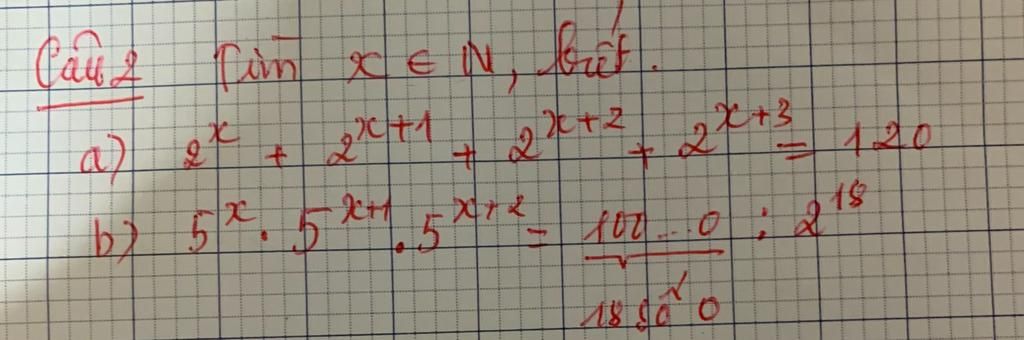 Câu 2 Tìm x ∈ N, biết.
a) 2^x + 2^{x+1} + 2^{x+2} + 2^{x+3} = 120
b) 5^x . 5^{x+1} . 5^{x+2} = 100...0 : 2^{18}
18 số 0